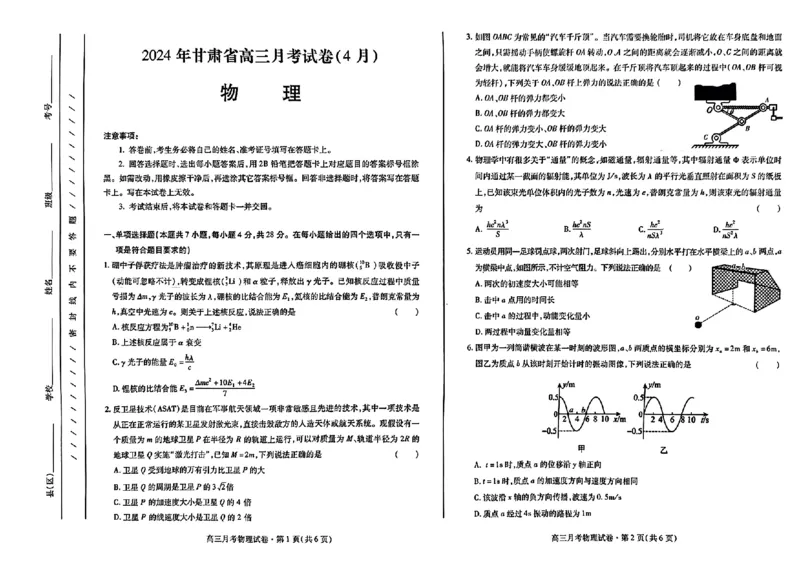 考号
班级
姓名
学校
县(区)
密 封 线 内 不 要 答 题
2024 年甘肃省高三月考试卷(4 月)
物 理
注意事项:
1. 答卷前,考生务必将自己的姓名、准考证号填写在答题卡上。
2. 回答选择题时,选出每小题答案后,用 2B 铅笔把答题卡上对应题目的答案标号框涂
黑。如需改动,用橡皮擦干净后,再选涂其它答案标号框。回答非选择题时,将答案写在答题
卡上。写在本试卷上无效。
3. 考试结束后,将本试卷和答题卡一并交回。
一、单项选择题(本题共 7 小题,每小题 4 分,共 28 分。在每小题给出的四个选项中,只有一
项是符合题目要求的)
1. 硼中子俘获疗法是肿瘤治疗的新技术,其原理是进入癌细胞内的硼核(¹⁰₅B)吸收慢中子
(动能可忽略不计),转变成锂核(⁷₃Li)和 α 粒子,释放出 γ 光子。已知核反应过程中质量
亏损为 Δm,γ 光子的波长为 λ,硼核的比结合能为 E₁,氦核的比结合能为 E₂,普朗克常量为
h,真空中光速为 c。则关于上述核反应,说法正确的是 ( )
A. 核反应方程为¹⁰₅B+¹₀n⟶⁷₃Li+⁴₂He
B. 上述核反应属于 α 衰变
C. γ 光子的能量 E₀=hλ/c
D. 锂核的比结合能 E₃=(Δmc²+10E₁+4E₂)/7
2. 反卫星技术(ASAT)是目前在军事航天领域一项非常敏感且先进的技术,其中一项技术是
从正在正常运行的某卫星发射激光束,直接击毁敌方的人造天体或航天系统。观假设有一
个质量为 m 的地球卫星 P 在半径为 R 的轨道上运行,可以对质量为 M、轨道半径为 2R 的
地球卫星 Q 实施“激光打击”,已知 M=2m,下列说法正确的是 ( )
A. 卫星 Q 受到地球的万有引力比卫星 P 的大
B. 卫星 Q 的周期是卫星 P 的 3√2倍
C. 卫星 P 的加速度大小是卫星 Q 的 4 倍
D. 卫星 P 的线速度大小是卫星 Q 的 2 倍
高三月考物理试卷·第 1 页(共 6 页)
3. 如图 OABC 为常见的“汽车千斤顶”。当汽车需要换轮胎时,司机将它放在车身底盘和地面
之间,只需摇动手柄使螺旋杆 OA 转动,O、A 之间的距离就会逐渐减小,O、C 之间的距离就
会增大,就能将汽车车身缓缓地顶起来。在千斤顶将汽车顶起来的过程中(OA、OB 杆可视
为轻杆),下列关于 OA、OB 杆上弹力的说法正确的是 ( )
A. OA、OB 杆的弹力都变小
B. OA、OB 杆的弹力都变大
C. OA 杆的弹力变小、OB 杆的弹力变大
D. OA 杆的弹力变大、OB 杆的弹力变小
O
A
B
C
4. 物理学中有很多关于“通量”的概念,如磁通量,辐射通量等,其中辐射通量 Φ 表示单位时
间内通过某一截面的辐射能,其单位为 J/s,波长为 λ 的平行光垂直照射在面积为 S 的纸板
上,已知该束光单位体积内的光子数为 n,光速为 c,普朗克常量为 h,则该束光的辐射通量
为 ( )
A. hc²nλ³/S B. hc²nS/λ C. hc²/nSλ³ D. hc²/nS²λ
5. 运动员用同一足球罚点球,两次射门,足球斜向上踢出,分别水平打在水平横梁上的 a、b 两点,a
为横梁中点,如图所示,不计空气阻力。下列说法正确的是 ( )
A. 两次的初速度大小可能相等
B. 击中 a 点用的时间长
C. 击中 a 的过程中,动能变化量小
D. 两过程中动量变化量相等
a
b
O
6. 图甲为一列简谐横波在某一时刻的波形图,a、b 两质点的横坐标分别为 xₐ=2m 和 x_b=6m,
图乙为质点 b 从该时刻开始计时的振动图像,下列说法正确的是 ( )
y/m
0.5
-0.5
0 2 4 6 8 10 x/m
a b
甲
y/m
0.5
-0.5
0 2 4 6 8 10 t/s
乙
A. t=1s 时,质点 a 的位移沿 y 轴正向
B. t=1s 时,质点 a 的加速度方向与速度方向相同
C. 该波沿 x 轴的负方向传播,波速为 0.5m/s
D. 质点 a 经过 4s 振动的路程为 1m
高三月考物理试卷·第 2 页(共 6 页)